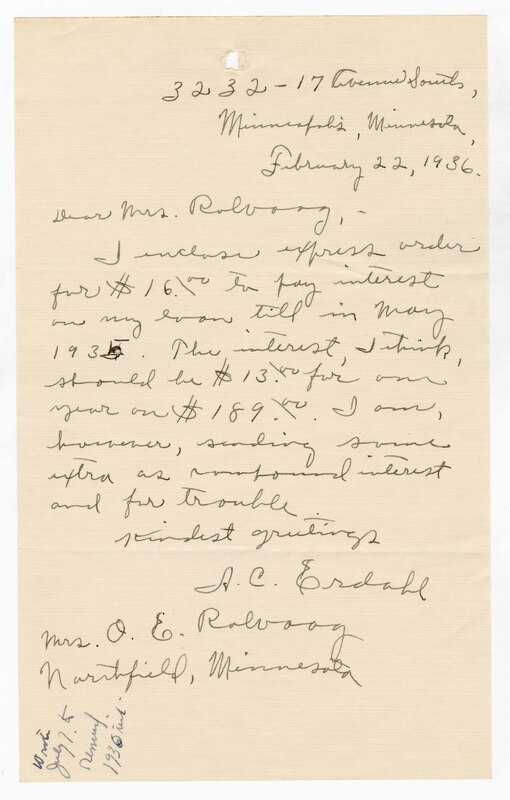 3232 - 17 Avenue South,
Minneapolis, Minnesota,
February 22, 1936.
Dear Mrs. Rolvaag, -
I enclose express order
for $16.00 to pay interest
on my loan till in May
1935. The interest, I think,
should be $13.00 for one
year on $189.00. I am,
however, sending some
extra as compound interest
and for trouble.
Kindest greetings
A. C. Erdahl
Mrs. O. E. Rolvaag
Northfield, Minnesota
Wrote
July 7
1935 int.